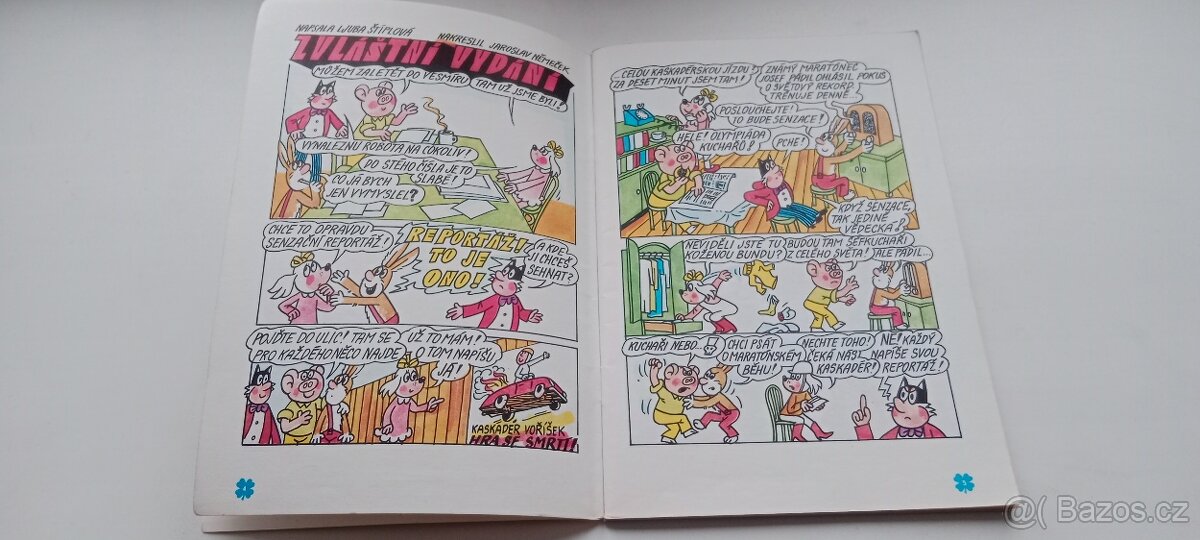 NAPSALA LJUBA ŠTÍPLOVÁ
NAKRESLIL JAROSLAV NĚMEČEK
ZVLÁŠTNÍ VYDÁNÍ
MŮŽEM ZALETĚT DO VESMÍRU
TAM UŽ JSME BYLI!
VYNALEZNU ROBOTA NA COKOLIV!
PO STÉHO ČÍSLA JE TO
SLABÉ!
CO JÁ BYCH
JEN VYMYSLEL?
CHCE TO OPRAVDU
SENZAČNÍ REPORTÁŽ!
REPORTÁŽ!
TO JE
ONO!
A KDE
JI CHCEŠ
SEHNAT?
POJĎTE DO ULIC! TAM SE
PRO KAŽDÉHO NĚCO NAJDE
UŽ TO MÁM!
O TOM NAPÍŠU
JÁ!
KASKADÉR VOŘÍŠEK
HRA SE SMRTÍ!
...CELOU KASKADÉRSKOU JÍZDU?
ZA DESET MINUT JSEM TAM!
ZNÁMÝ MARATÓNEC
JOSEF PÁDIL OHLÁSIL POKUS
O SVĚTOVÝ REKORD.
TRÉNUJE DENNĚ...
POSLOUCHEJTE!
TO BUDE SENZACE!
HELE! OLYMPIÁDA
KUCHAŘŮ!
PCHE!
KDYŽ SENZACE,
TAK JEDINĚ
VĚDECKÁ!
NEVIDĚLI JSTE TU
KOŽENOU BUNDU?
BUDOU TAM ŠÉFKUCHAŘI
Z CELÉHO SVĚTA!
ALE PÁDIL...
KUCHAŘI NEBO...
CHCI PSÁT
O MARATÓNSKÉM
BĚHU!
NECHTE TOHO!
ČEKÁ NÁS
KASKADÉR!
NE! KAŽDÝ
NAPÍŠE SVOU
REPORTÁŽ!
4
@( Bazos.cz